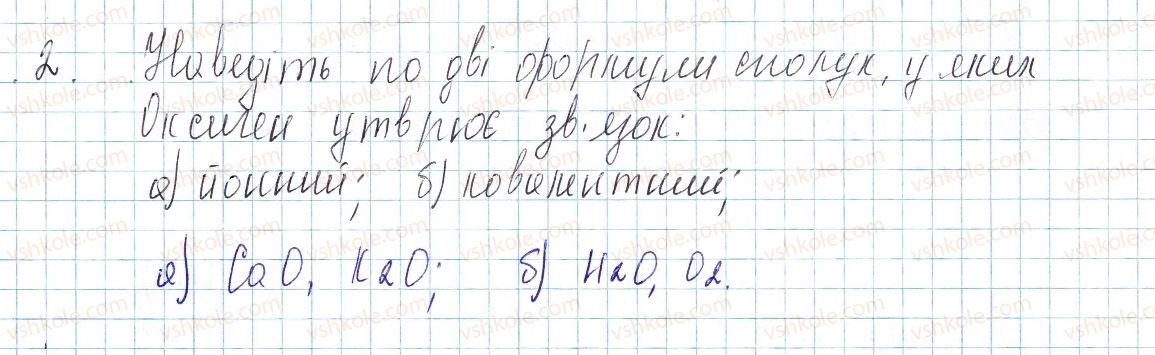 2. Наведіть по дві формули сполук, у яких
Оксиген утврює зв'язок:
а) йонний; б) ковалентний;
а) CaO, K2O; б) H2O, O2.